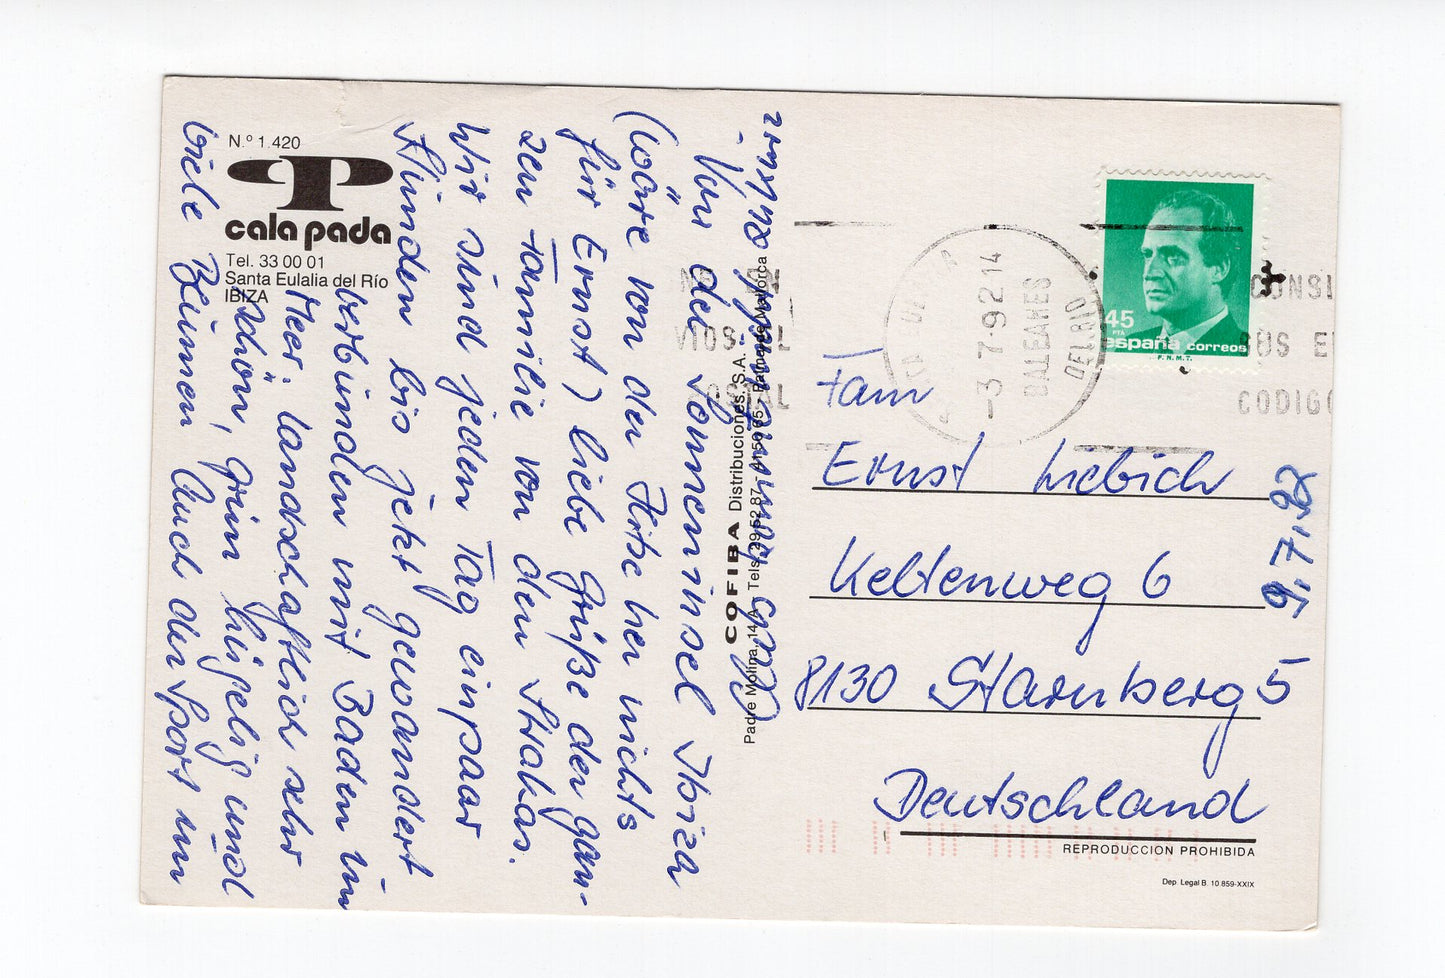 N.º 1.420
cala pada
Tel. 33 00 01
Santa Eulalia del Río
IBIZA
Von der Sonneninsel Ibiza
(wäre von der Hitze her nichts
für Ernst) liebe Grüße der gan-
zen Familie von den Strakas.
Wir sind jeden Tag ein paar
Stunden bis jetzt gewandert
verbunden mit Baden im
Meer. Landschaftlich sehr
schön, grün hügelig und
viele Blumen Auch der Sport
COFIBA Distribuciones, S.A.
Padre Molina, 14 A - Tels. 29 52 87 - Palma de Mallorca
NO EN
VIOS
POSTAL
-3 -7 92 14
BALEARES
DEL RIO
CONSI
SUS E
CODIGO
45
PTA
españa correos
F.N.M.T.
Fam
Ernst Liebich
Keltenweg 6
8130 Starnberg 5
Deutschland
9.7.92
REPRODUCCION PROHIBIDA
Dep. Legal B. 10.859-XXIX